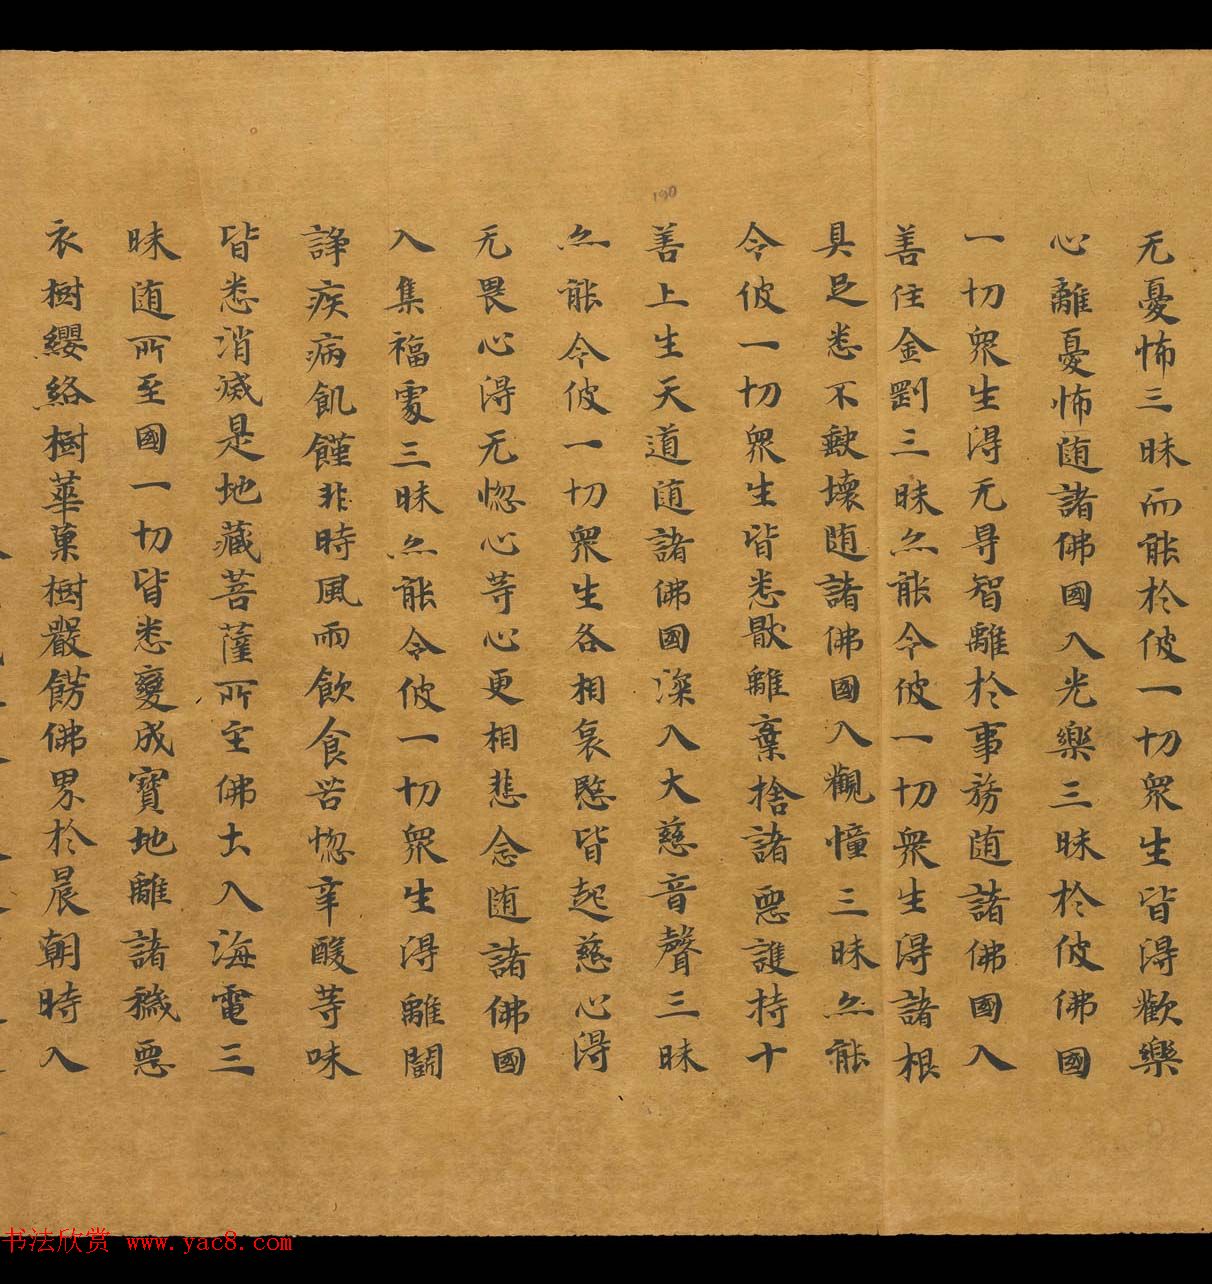 190
无憂怖三昧而能於彼一切衆生皆得歡樂
心離憂怖随諸佛國入光樂三昧於彼佛國
一切衆生得无㝵智離於事務随諸佛國入
善住金剛三昧亦能令彼一切衆生得諸根
具足悉不缺壞随諸佛國入觀幢三昧亦能
令彼一切衆生皆悉猒離棄捨諸惡護持十
善上生天道随諸佛國深入大慈音聲三昧
亦能令彼一切衆生各相哀愍皆起慈心得
无畏心得无惱心等心更相悲念随諸佛國
入集福處三昧亦能令彼一切衆生得離鬪
諍疾病飢饉非時風雨飲食苦惱辛酸等味
皆悉消滅是地藏菩薩所至佛土入海電三
昧随所至國一切皆悉變成寶地離諸穢惡
衣樹纓絡樹華菓樹嚴餝佛界於晨朝時入
书法欣赏 www.yac8.com